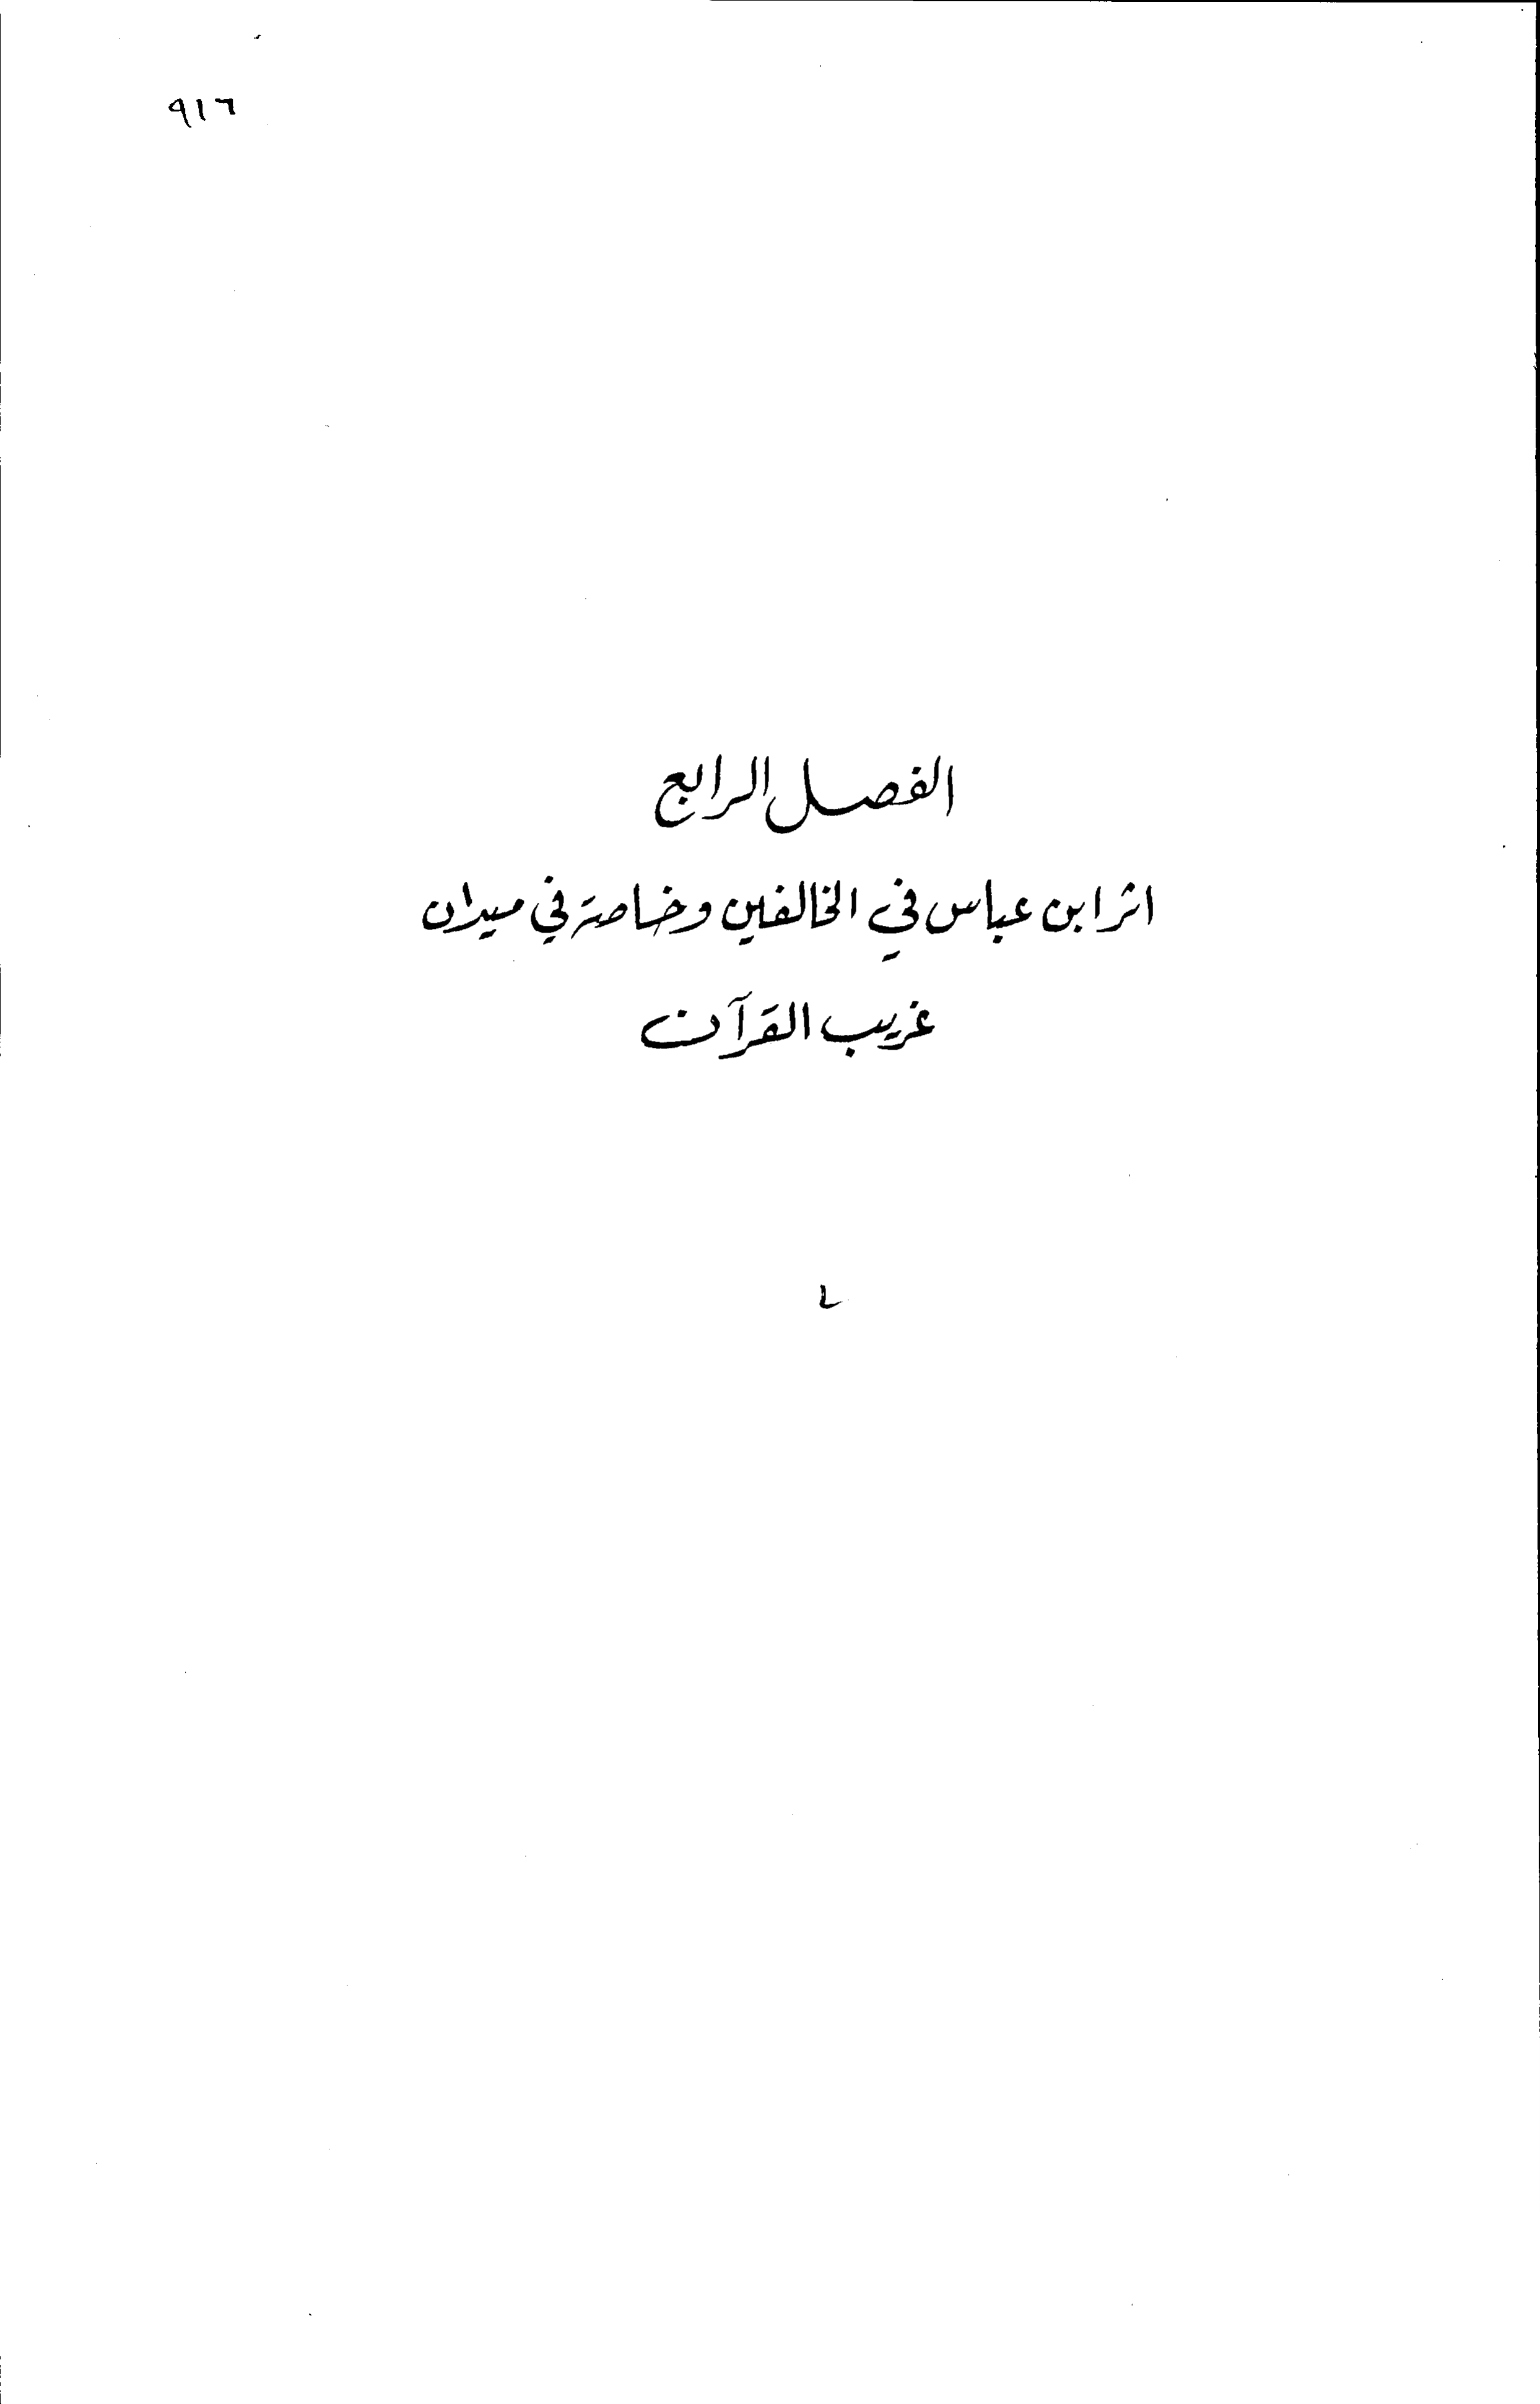 ٩١٦
الفصل الرابع
اثر ابن عباس في الخالفين وخاصة في ميدان
غريب القرآن